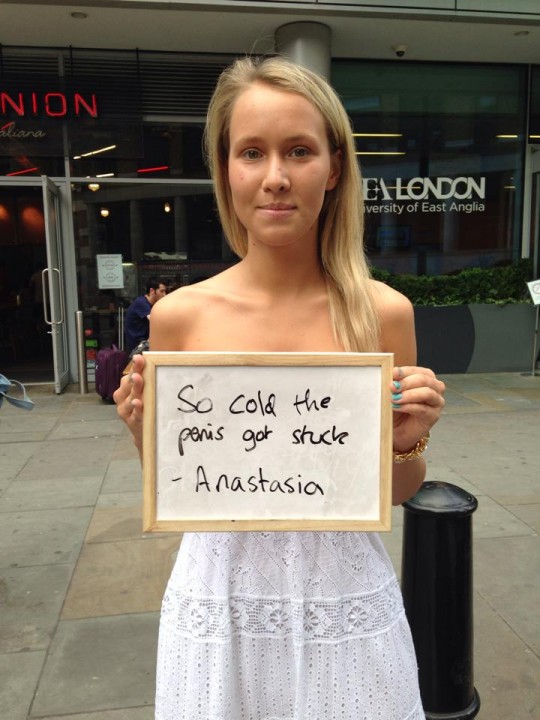 NION
aliana
EA LONDON
versity of East Anglia
So cold the
penis got stuck
- Anastasia